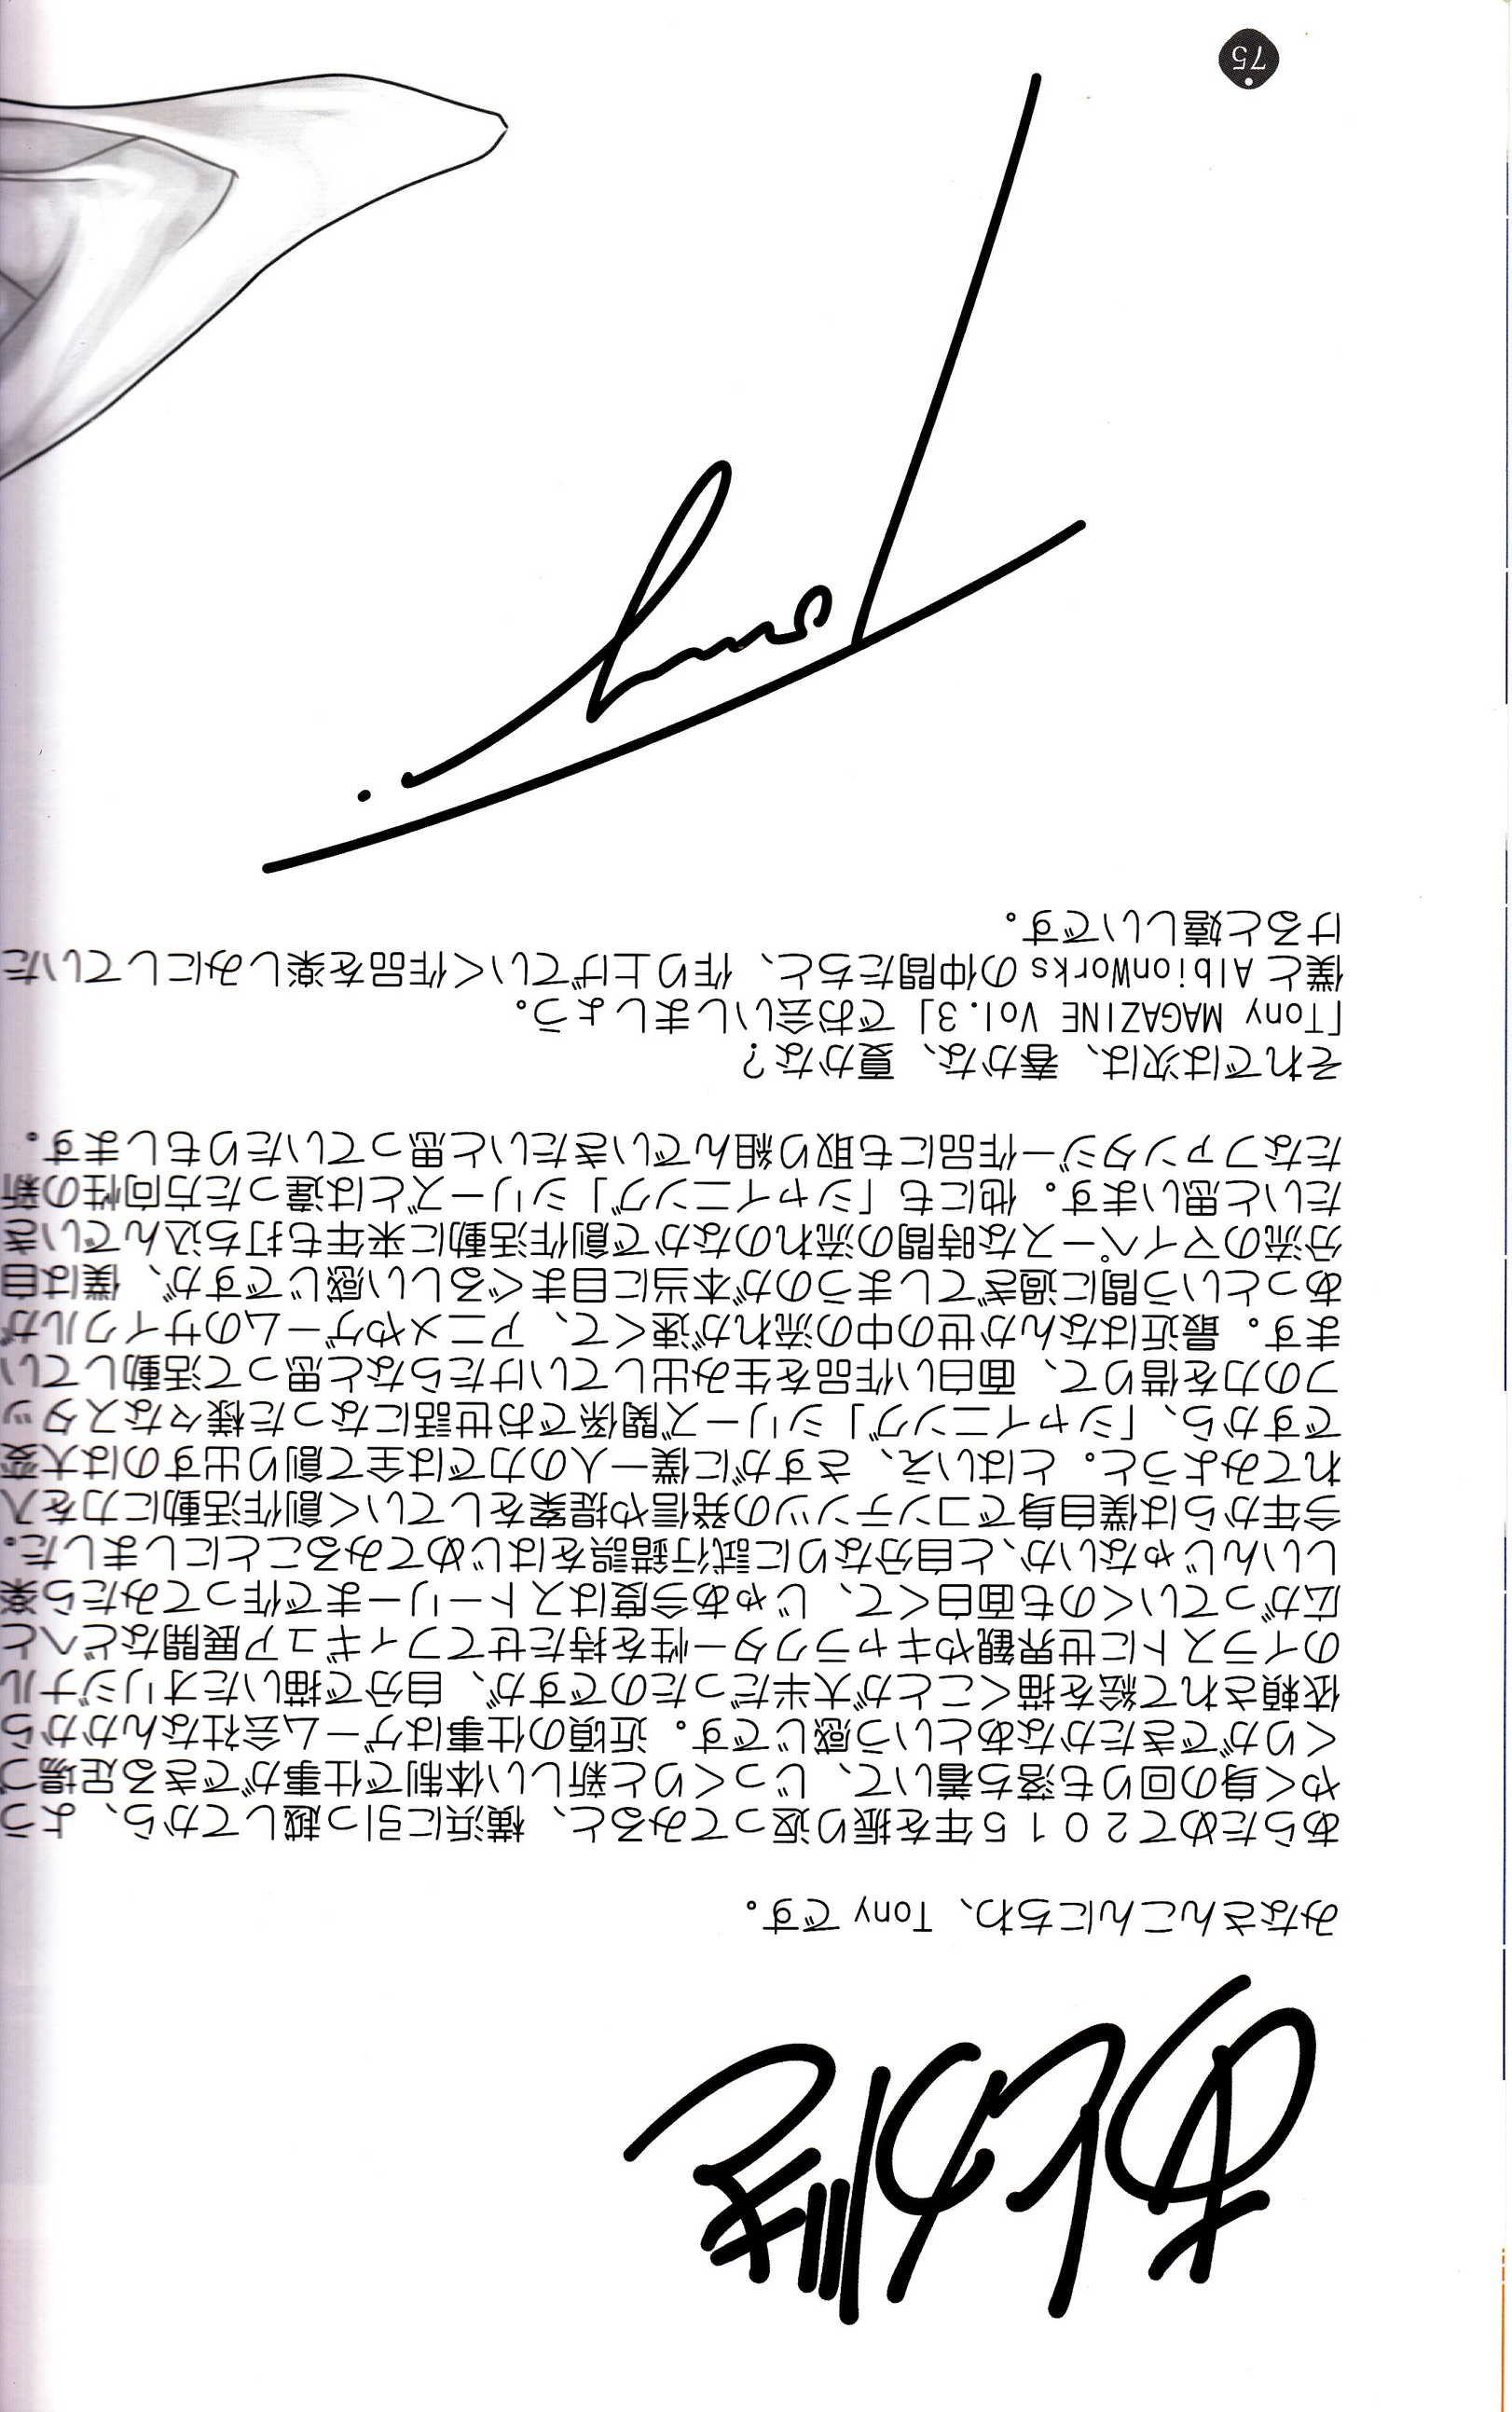 あとがき
みなさんこんにちわ、Tonyです。
あらためて2015年を振り返ってみると、横浜に引っ越してから、よう
やく身の回りも落ち着いて、じっくりと新しい体制で仕事ができる足場づ
くりができたかなあという感じです。近頃の仕事はゲーム会社なんかから
依頼されて絵を描くことが大半だったのですが、自分で描いたオリジナル
のイラストに世界観やキャラクター性を持たせてフィギュア展開などへと
広がっていくのも面白くて、じゃあ今度はストーリーまで作ってみたら楽
しいんじゃないか、と自分なりに試行錯誤をはじめてみることにしました。
今年からは僕自身でコンテンツの発信や提案をしていく創作活動に力を入
れてみようと。とはいえ、さすがに僕一人の力では全て創り出すのは大変
ですから、「シャイニング」シリーズ関係でお世話になった様々なスタッ
フの力を借りて、面白い作品を生み出していけたらなと思って活動してい
ます。最近はなんか世の中の流れが速くて、アニメやゲームのサイクルが
あっという間に過ぎてしまうのが本当に目まぐるしい感じですが、僕は自
分流のマイペースな時間の流れのなかで創作活動に来年も打ち込んでいき
たいと思います。他にも「シャイニング」シリーズとは違った方向性の新
たなファンタジー作品にも取り組んでいきたいと思っていたりもします。
それでは次は、春かな、夏かな?
「Tony MAGAZINE Vol.3」でお会いしましょう。
僕とAlbionWorksの仲間たちと、作り上げていく作品を楽しみにしていた
けると嬉しいです。
Tony.
75